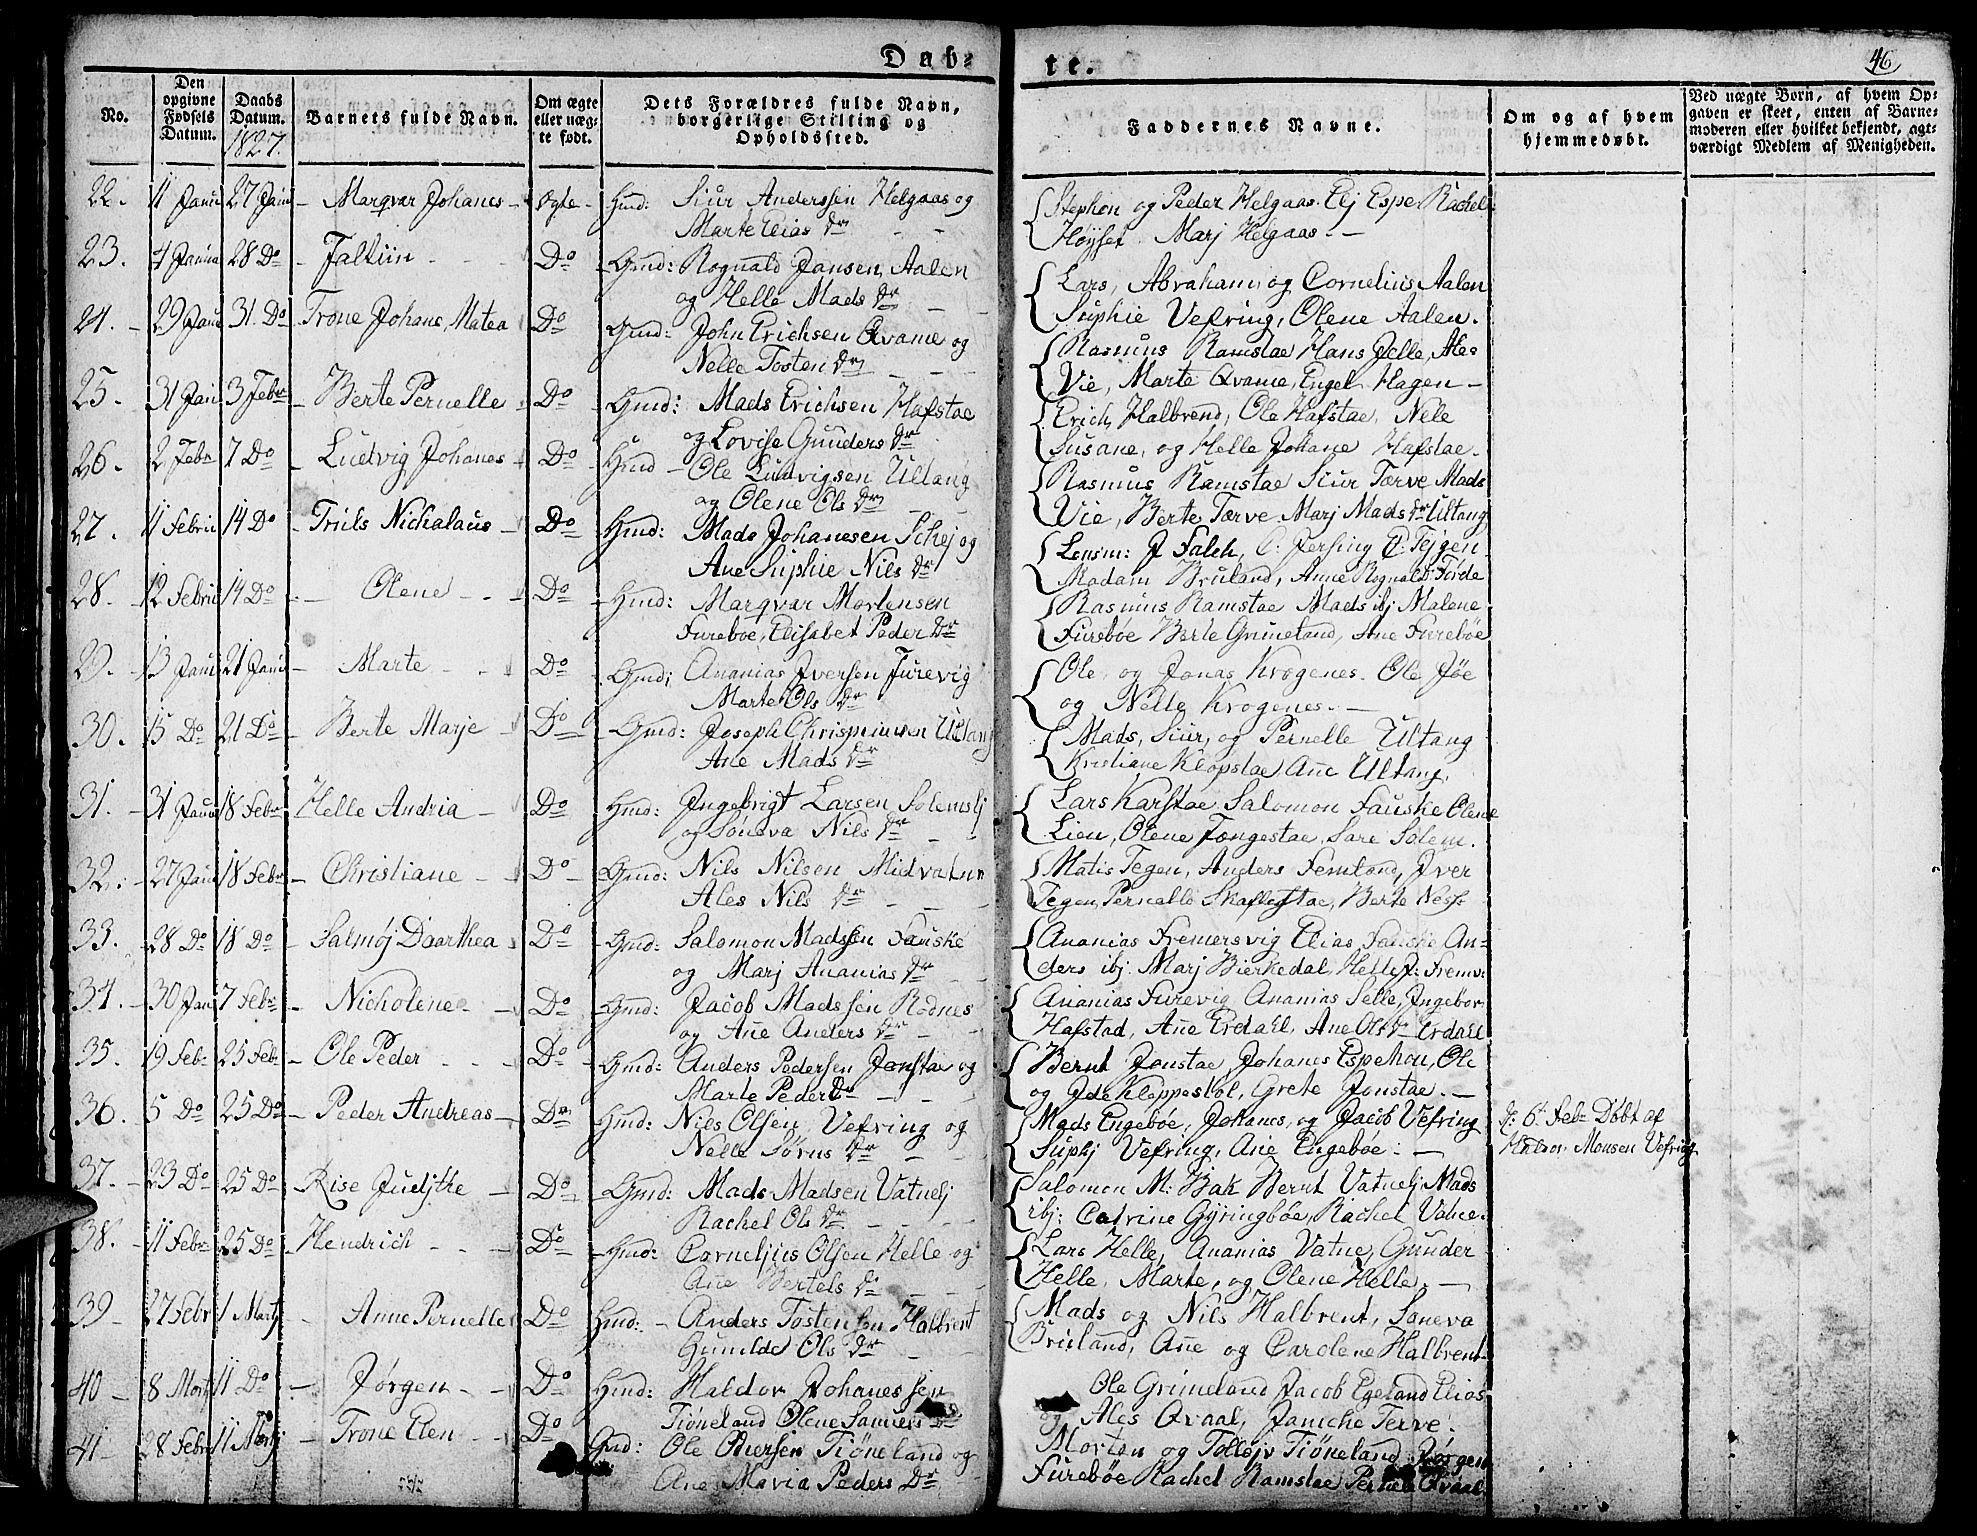 Døb-
te.
46
No.
Den opgivne Fødsels Datum.
Daabs Datum. 1827.
Barnets fulde Navn.
Om ægte eller uæg-te født.
Dets Forældres fulde Navn, borgerlige Stilling og Opholdssted.
Faddernes Navne.
Om og af hvem hjemmedøbt.
Ved uægte Børn, af hvem Op-gaven er skeet, enten af Barne-moderen eller hvilket bekjendt, agt-værdigt Medlem af Menigheden.
22. 11 Janu 27 Janu Marqvar Johanes Ægte Gmd: Siur Anderssen Helgaas og
Marte Elias Dr
Stephen og Peder Helgaas. Elj Espe Rachel
Høyset Marj Helgaas.
23. 4 Janua 28 Do Falkiin Do Gmd: Rognald Jansen Aalen
og Helle Mads Dr
Lars, Abraham, og Cornelius Aalen
Suphie Vefring, Olene Aalen.
24. 29 Janu 31. Do Trone Johane, Matea Do Gmd: John Erichsen Qvame og
Nelle Tosten Dr
Rasmus Ramstae Hans Jelle, Ales
Vie, Marte Qvame, Engel Hagen
25. 31 Jan 3 Febr Berte Pernelle Do Gmd: Mads Erichsen Hafstae
og Lovise Gunders Dr
Erich Halbrend, Ole Hafstae, Nele
Susane, og Helle Johane Hafstae.
26. 2 Febr 7 Do Ludvig Johanes Do Hmd Ole Ludvigsen Ultang
og Olene Ols Dr
Rasmus Ramstae Siur Tærve Mads
Vie, Berte Tærve Marj Mads Dr Ultang
27. 11 Febru 14 Do Truls Nicholaus Do Hmd: Mads Johanesen Schej og
Ane Suphie Nils Dr
Lensm: J Falch, C: Persing P: Tejgen
Madam Bruland, Anne Rognald Førde
28. 12 Febru 14 Do Olene Do Hmd: Marqvar Mortensen
Furebøe, Elisabet Peder Dr
Rasmus Ramstae Mads ibj Malene
Furebøe Berte Grimeland, Ane Furebøe
29. 13 Janu 21 Janu Marte Do Gmd: Ananias Iversen Furevig
Marte Ols Dr
Ole og Jonas Krogenes. Ole Jøe
og Nelle Krogenes.
30. 15 Do 21 Do Berte Marje Do Gmd: Joseph Chrispinusen Ultang
Ane Mads Dr
Mads, Siur, og Pernelle Ultang
Kristiane Klopstae Ane Ultang.
31. 31 Janu 18 Febr Helle Andria Do Hmd: Ingebrigt Larsen Solemslj
og Søneva Nils Dr
Lars Karstae Salomon Fauske Olene
Lien, Olene Tongestae, Sare Solem.
32. 27 Janu 18 Febr Christiane Do Gmd: Nils Nilsen Midvatne
Ales Nils Dr
Matis Tegen, Anders Femland, Iver
Tegen, Pernelle Skaflestae, Berte Ness
33. 28 Do 18 Do Salmøj Daarthea Do Gmd: Salomon Madssen Fauske
og Marj Ananias Dr
Ananias Fremersvig Elias Fauske An-
ders ibj. Marj Bierkedal, Helle J: Fremr
34. 30 Jan 7 Febr Nicholene Do Gmd: Jacob Madssen Rodnes
og Ane Anders Dr
Ananias Furevig Ananias Selle, Ingebor
Hafstad, Ane Erdahl, Ane Ols Dr Erdahl
35. 19 Feb 25 Feb Ole Peder Do Gmd: Anders Pedersen Jonstae og
Marte Peder Dr
Bernt Jonstae, Johanes Espehou, Ole
og Ide Kloppestøl, Grete Jonstae.
36. 5 Do 25 Do Peder Andreas Dr Gmd: Nils Olsen Vefring og
Nelle Sørns Dr
Mads Engebøe, Johanes, og Jacob Vefring
Suphj Vefring, Ane Engebøe
d: 6t Febr Døbt af
Haldor Monsen Vefring
37. 23 Do 25 Do Rise Judithe Do Gmd: Mads Madsen Vatnelj
Rachel Ols Dr
Salomon M: Bak Bernt Vatnelj Mads
ibj: Catrine Gyringbøe, Rachel Vatne.
38. 11 Febr 25 Do Hendrich Do Gmd: Cornelius Olsen Helle og
Ane Bertels Dr
Lars Helle, Ananias Vatne, Gunder
Helle, Marte, og Olene Helle.
39 27 Febr 1 Martj Anne Pernelle Do Hmd: Anders Tostensen Halbrent
Gunilde Ols Dr
Mads og Nils Halbrent, Søneva
Bruland, Ane og Carolene Halbrent.
40 8 Martj 11 Do Jørgen Do Hmd: Haldor Johanessen
Tiøneland Olene Samuels Dr
Ole Grimeland Jacob Egeland Elias
og Ales Qvaal, Janiche Terve.
41 28 Febru 11 Martj Trone Elen Do Gmd: Ole Ottersen Tiøneland og
Ane Maria Peders Dr
Morten og Tollejv Tiøneland Jørgen
Furebøe Rachel Ramstae Pernele Qvaal